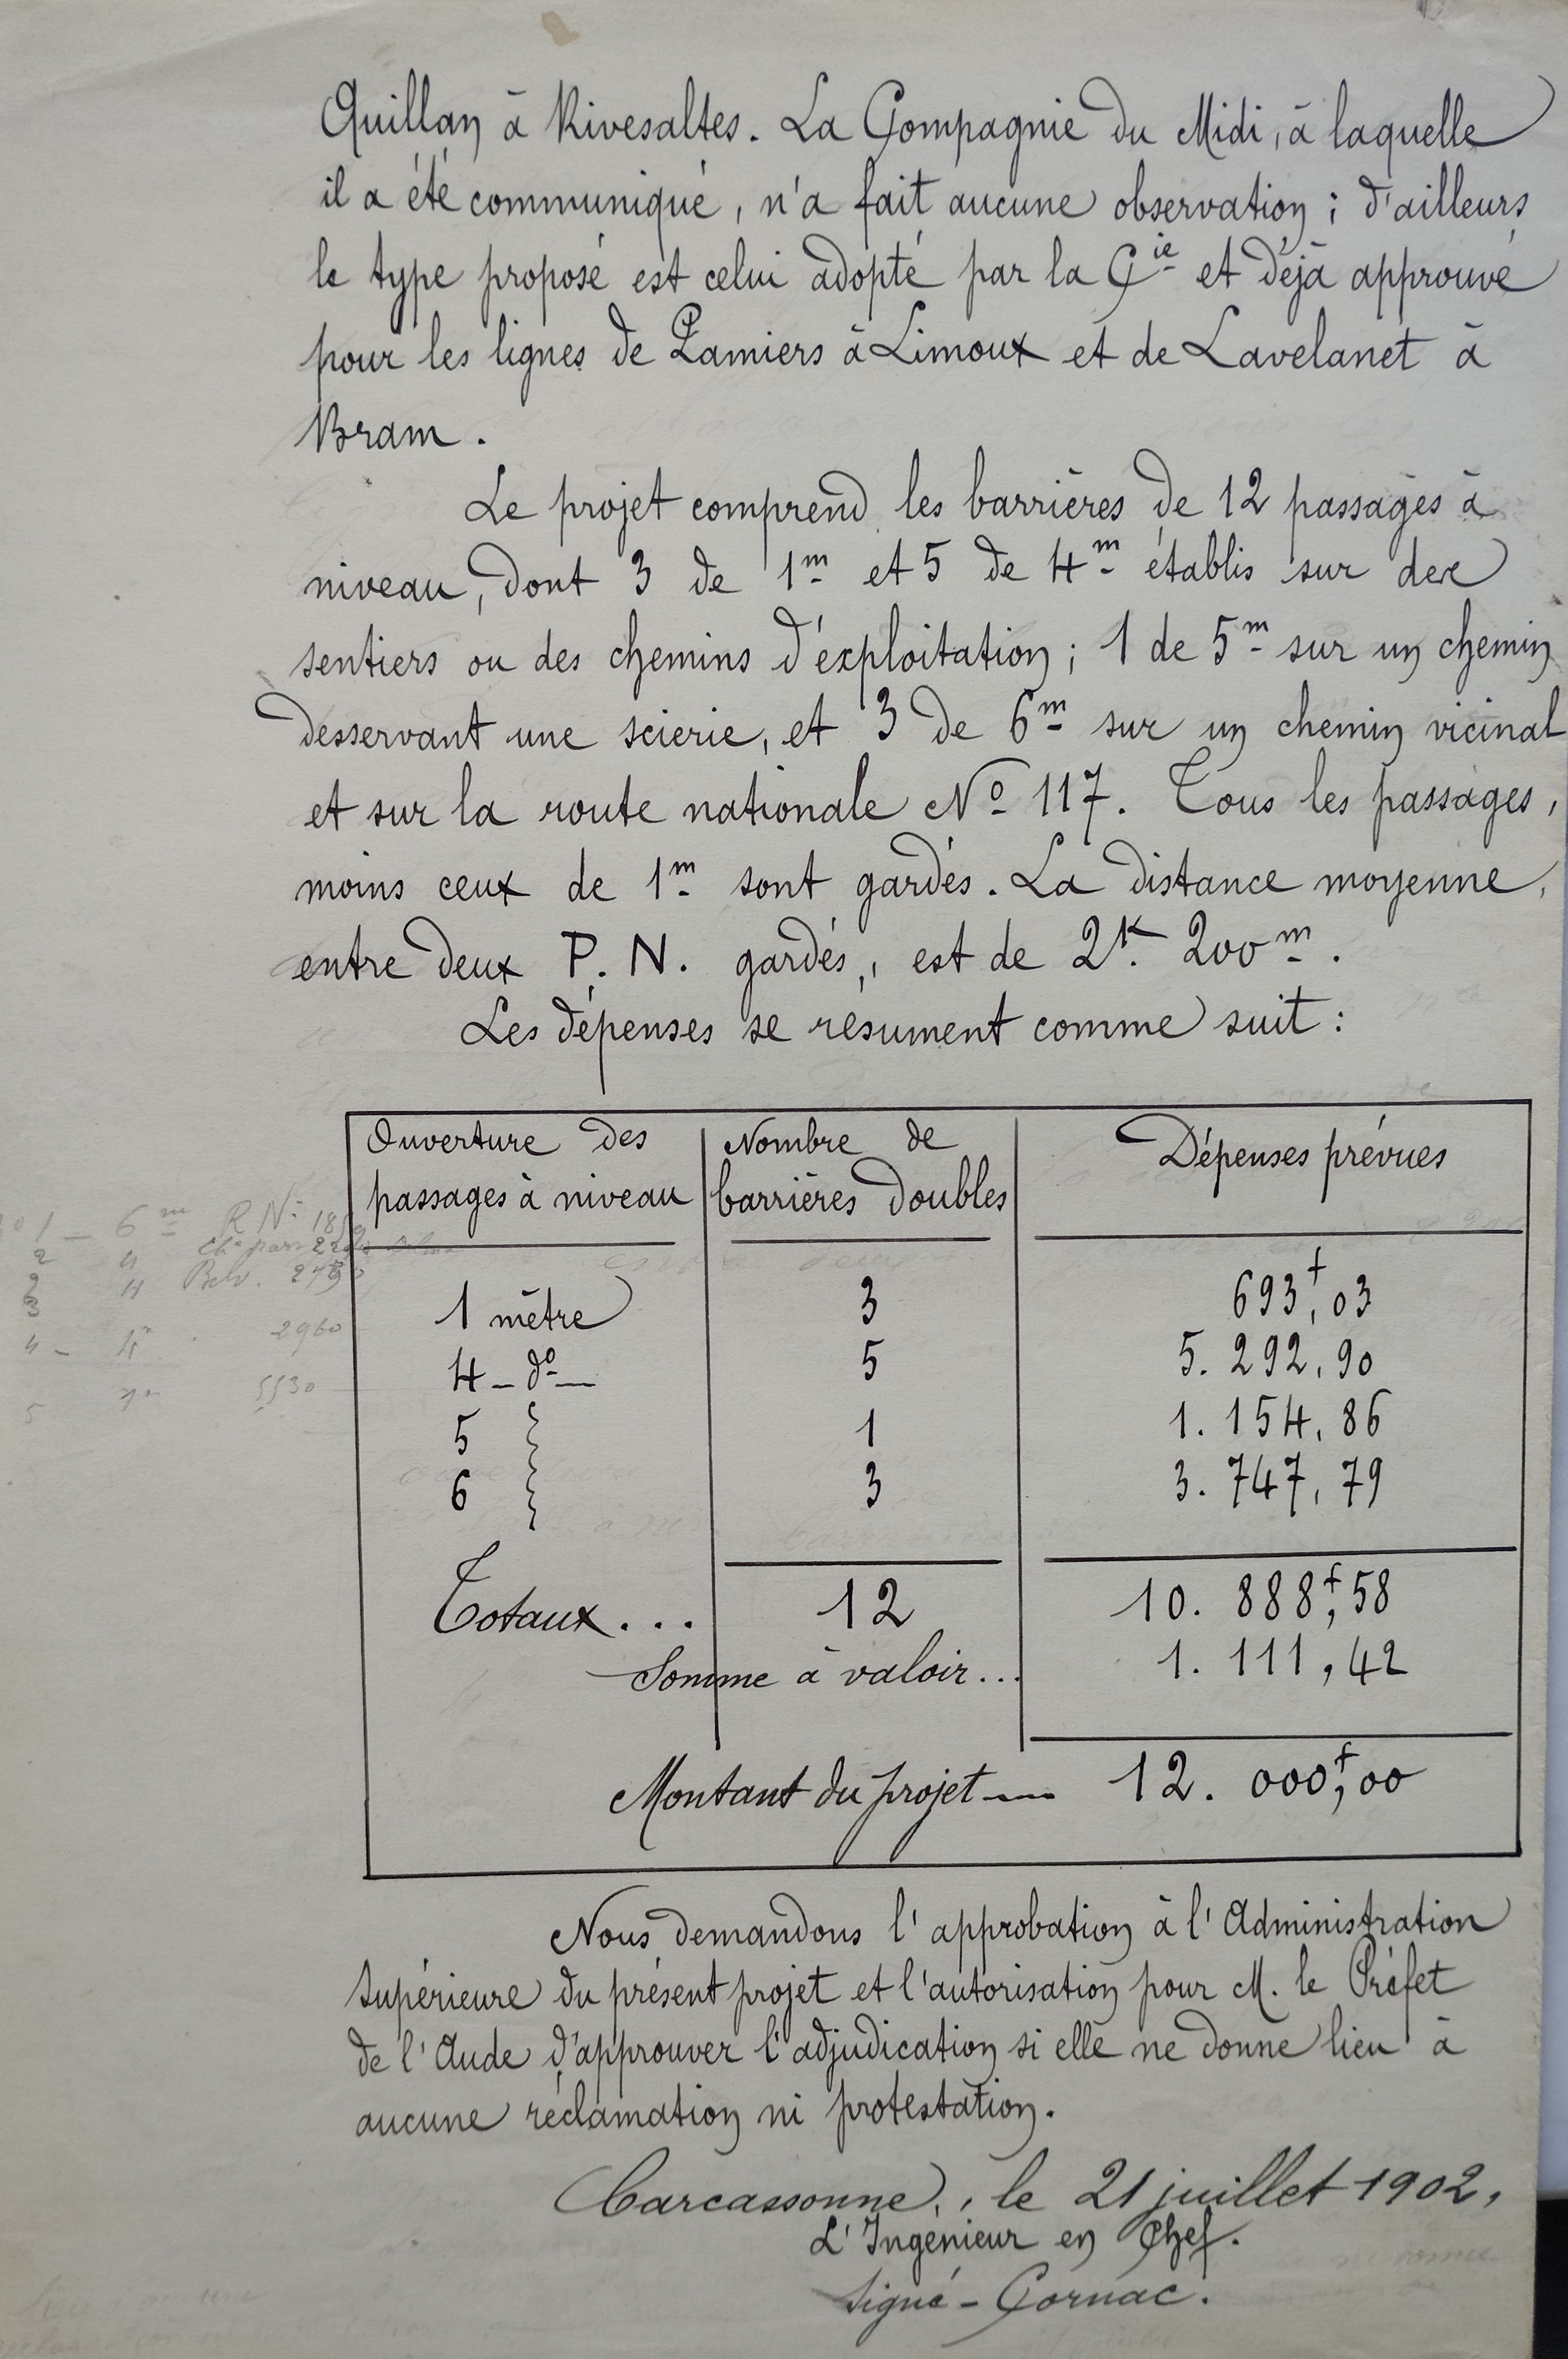 Quillan à Rivesaltes. La Compagnie du Midi, à laquelle
il a été communiqué, n'a fait aucune observation ; d'ailleurs
le type proposé est celui adopté par la Cie et déjà approuvé
pour les lignes de Pamiers à Limoux et de Lavelanet à
Bram.
Le projet comprend les barrières de 12 passages à
niveau, dont 3 de 1m et 5 de 4m établis sur des
sentiers ou des chemins d'exploitation ; 1 de 5m sur un chemin
desservant une scierie, et 3 de 6m sur un chemin vicinal
et sur la route nationale No 117. Tous les passages,
moins ceux de 1m sont gardés. La distance moyenne,
entre deux P. N. gardés, est de 2k. 200m.
Les dépenses se résument comme suit :
Ouverture des passages à niveau
Nombre de barrières doubles
Dépenses prévues
1 mètre 3 693f,03
4 – do – 5 5.292,90
5 1 1.154,86
6 3 3.747,79
Totaux... 12 10.888f,58
Somme à valoir... 1.111,42
Montant du projet — 12.000f,00
6m R No
2960
5530
Nous demandons l'approbation à l'Administration
supérieure du présent projet et l'autorisation pour M. le Préfet
de l'Aude d'approuver l'adjudication si elle ne donne lieu à
aucune réclamation ni protestation.
Carcassonne, le 21 juillet 1902,
L'Ingénieur en Chef.
Signé – Cornac.